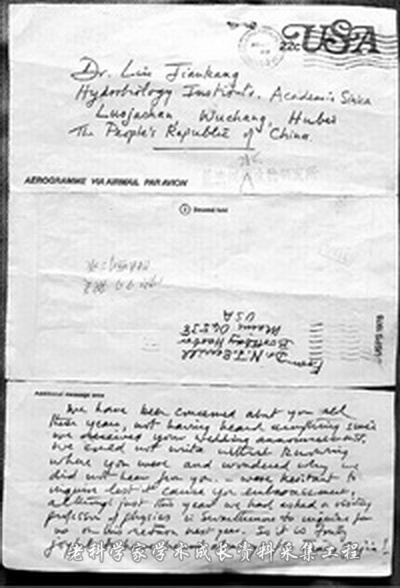 22c USA
Dr. Liu Jiankang
Hydrobiology Institute, Academia Sinica
Luojiashan, Wuchang, Hubei
The People's Republic of China
AEROGRAMME VIA AIRMAIL PAR AVION
② Second fold
From
Dr. N. J. Berrill
Boothbay Harbor
Maine 04538
USA
Additional message area
We have been concerned about you all
these years, not having heard anything since
we received your wedding announcement.
We could not write without knowing
where you were and wondered why we
did not hear from you. – were hesitant to
inquire lest it cause you embarrassment,
although just this year we had asked a visiting
professor of physics in Swarthmore to inquire for
us on his return next year. So it is truly
老科学家学术成长资料采集工程